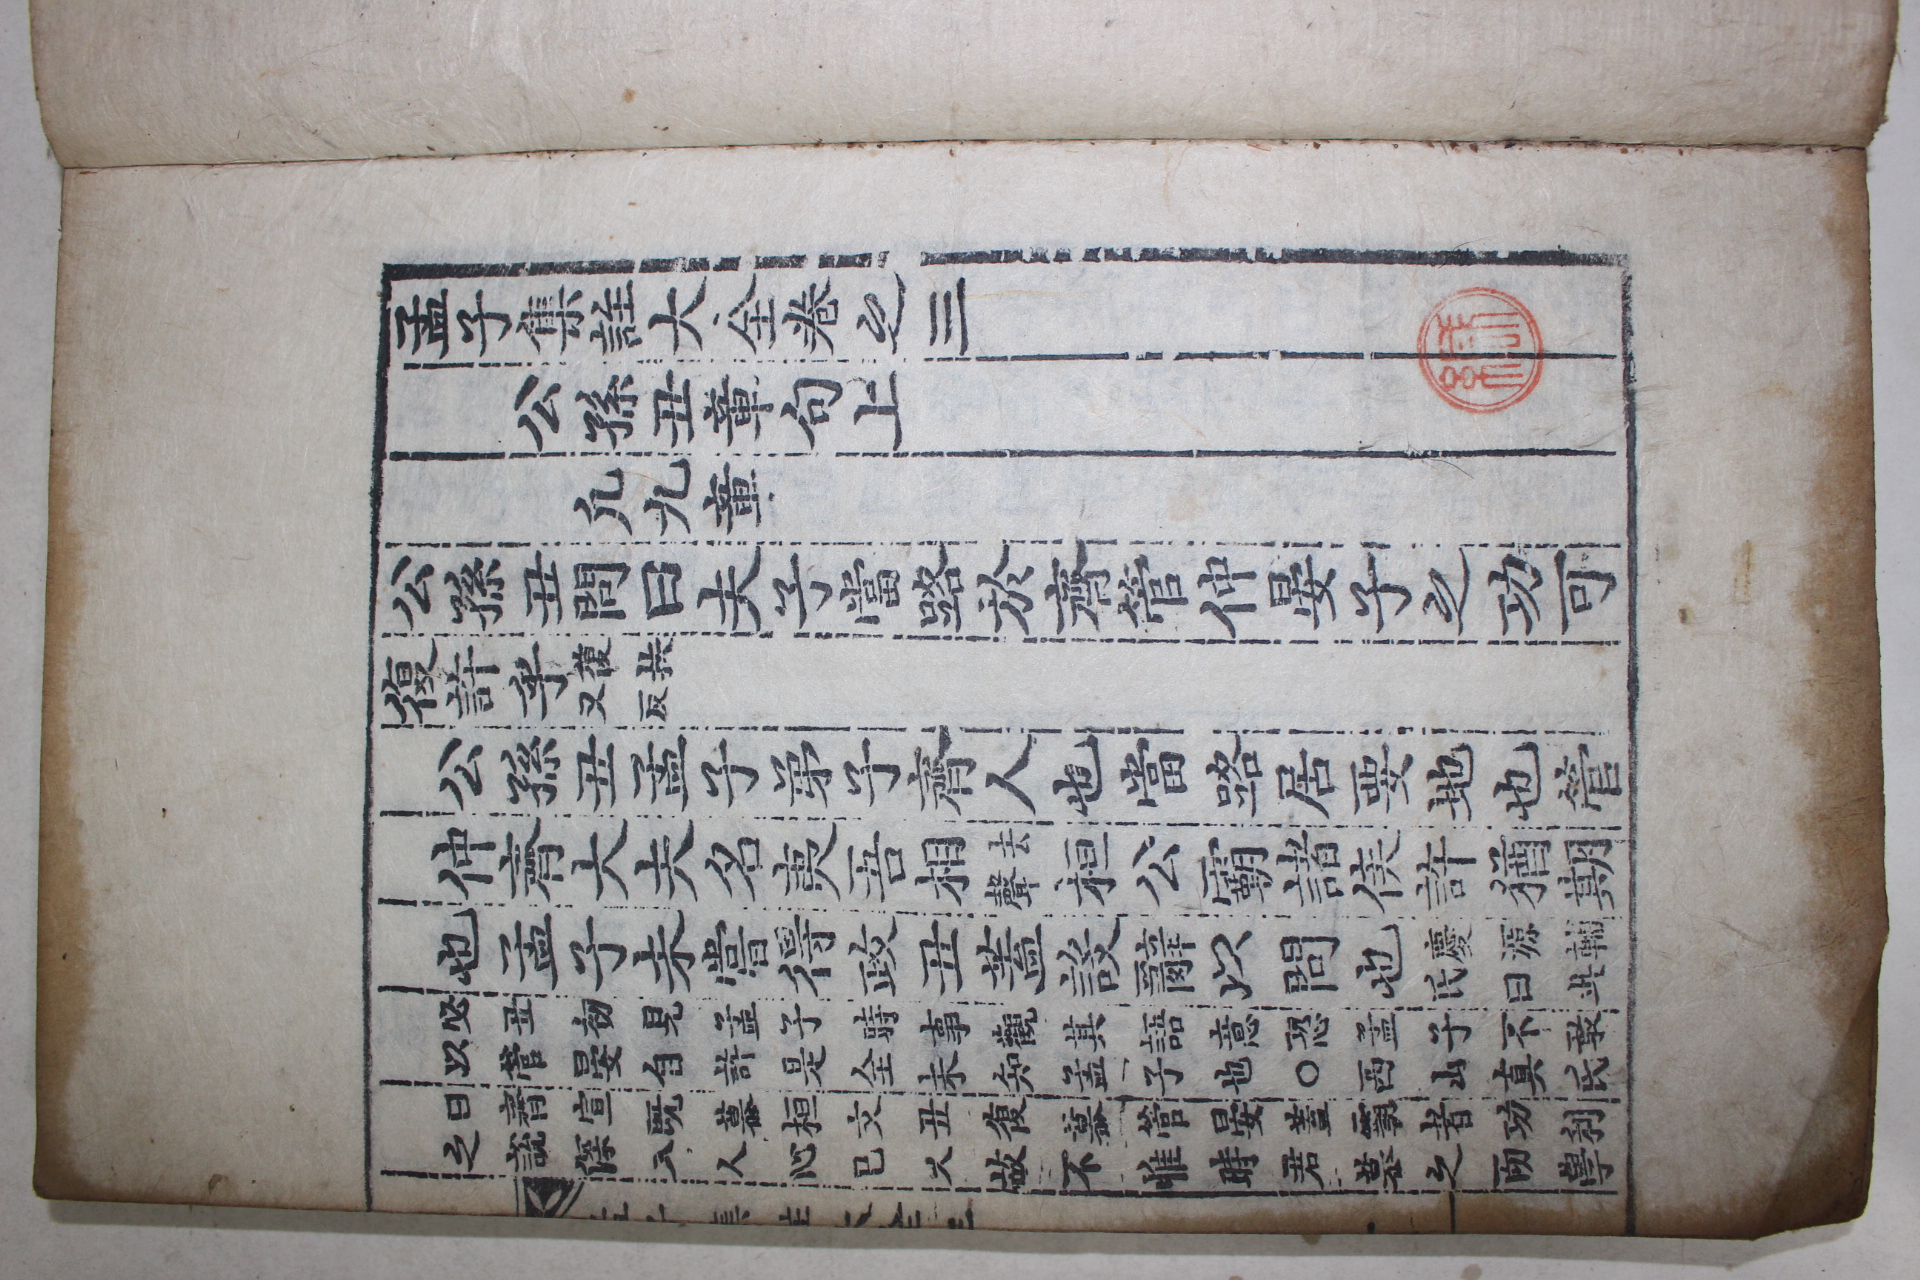 孟子集註大全卷之三
公孫丑章句上
凢九章
公孫丑問曰夫子當路於齊管仲晏子之功可
復許乎復扶又反
公孫丑孟子弟子齊人也當路居要地也管
仲齊大夫名夷吾相去聲桓公霸諸侯許猶期
也孟子未嘗得政丑蓋設辭以問也慶源輔氏曰此
必丑初見孟子時事觀其語意恐孟子不敢
以管晏自許是全未知孟子也○西山真氏
曰齊宣既慕桓文丑復慕管晏蓋霸者功利
之說深入人心已久故不惟時君慕之而學